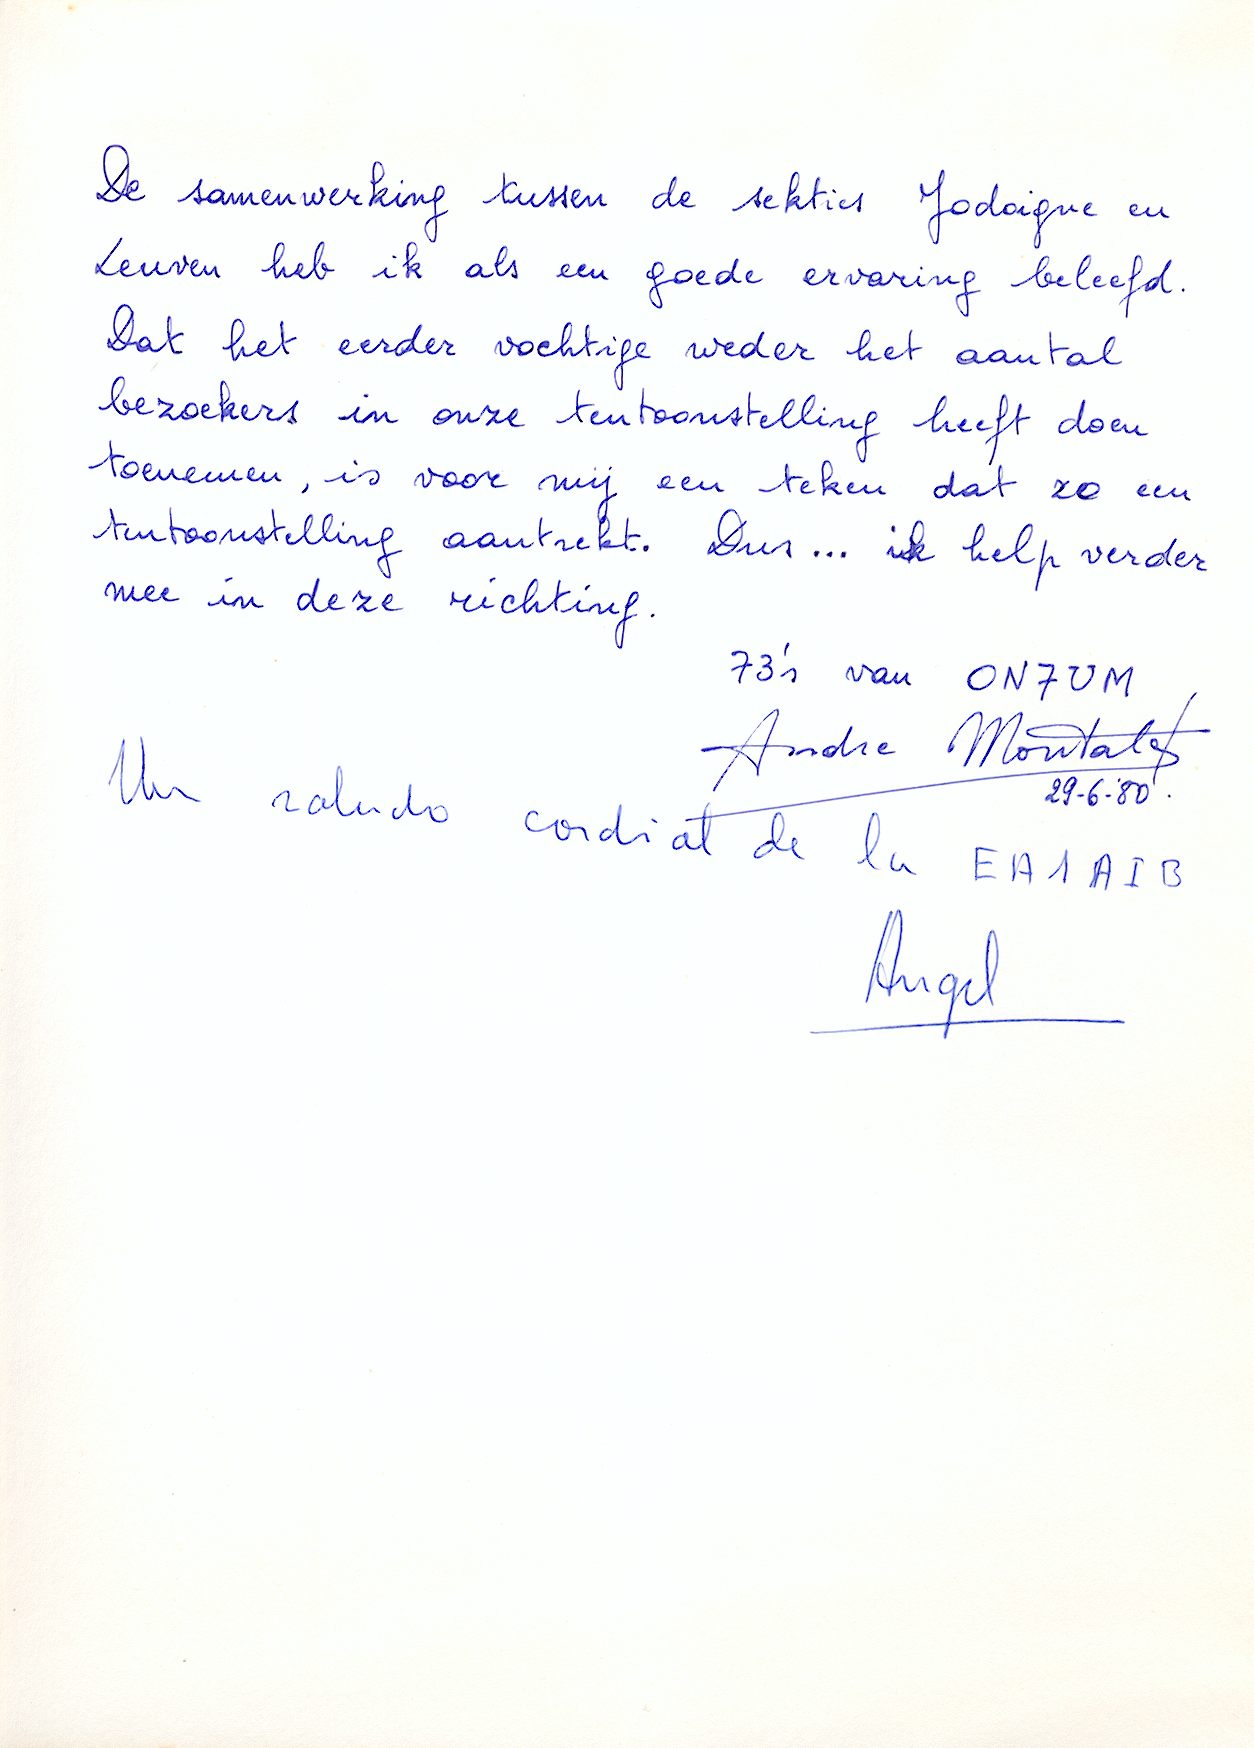 De samenwerking tussen de sekties Jodoigne en
Leuven heb ik als een goede ervaring beleefd.
Dat het eerder vochtige weder het aantal
bezoekers in onze tentoonstelling heeft doen
toenemen, is voor mij een teken dat zo een
tentoonstelling aantrekt. Dus... ik help verder
mee in deze richting.
73's van ON7UM
Andre
29-6-'80.
Un saludo cordial de la EA1AIB
Angel